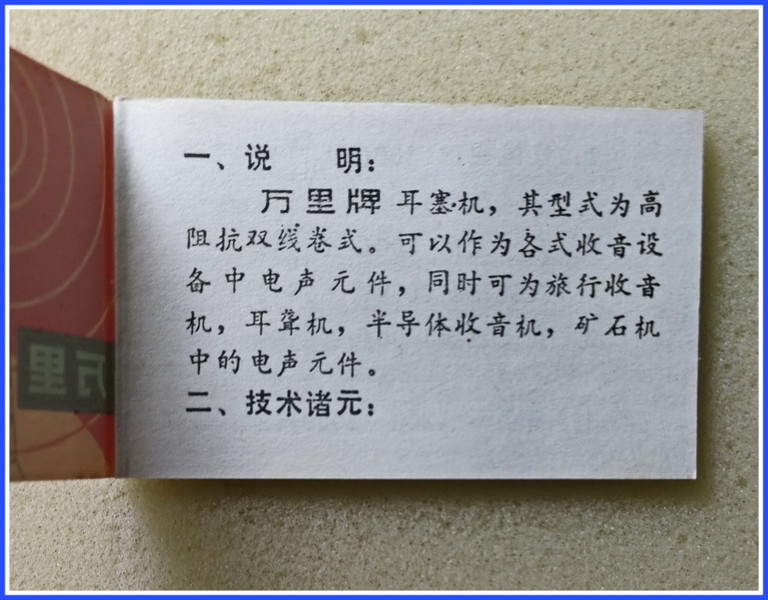 一、说　　明：
万里牌 耳塞机，其型式为高
阻抗双线卷式。可以作为各式收音设
备中电声元件，同时可为旅行收音
机，耳聋机，半导体收音机，矿石机
中的电声元件。
二、技术诸元：
万里